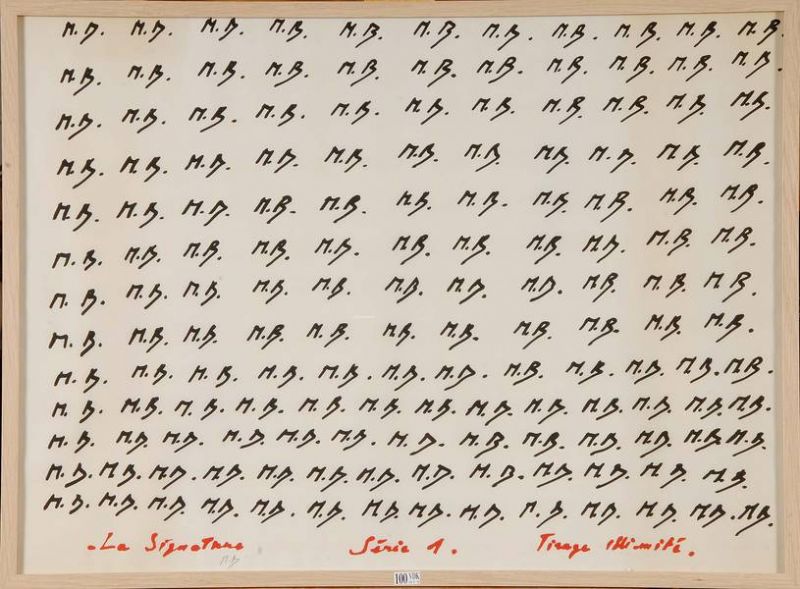 M.B. M.B. M.B. M.B. M.B. M.B. M.B. M.B. M.B. M.B. M.B.
M.B. M.B. M.B. M.B. M.B. M.B. M.B. M.B. M.B. M.B. M.B.
M.B. M.B. M.B. M.B. M.B. M.B. M.B. M.B. M.B. M.B. M.B.
M.B. M.B. M.B. M.B. M.B. M.B. M.B. M.B. M.B. M.B. M.B.
M.B. M.B. M.B. M.B. M.B. M.B. M.B. M.B. M.B. M.B. M.B.
M.B. M.B. M.B. M.B. M.B. M.B. M.B. M.B. M.B. M.B. M.B.
M.B. M.B. M.B. M.B. M.B. M.B. M.B. M.B. M.B. M.B. M.B.
M.B. M.B. M.B. M.B. M.B. M.B. M.B. M.B. M.B. M.B. M.B.
M.B. M.B. M.B. M.B. M.B. M.B. M.B. M.B. M.B. M.B. M.B. M.B.
M.B. M.B. M.B. M.B. M.B. M.B. M.B. M.B. M.B. M.B. M.B. M.B. M.B.
M.B. M.B. M.B. M.B. M.B. M.B. M.B. M.B. M.B. M.B. M.B. M.B. M.B.
M.B. M.B. M.B. M.B. M.B. M.B. M.B. M.B. M.B. M.B. M.B. M.B. M.B.
M.B. M.B. M.B. M.B. M.B. M.B. M.B. M.B. M.B. M.B. M.B. M.B. M.B. M.B.
. La Signature Série 1. Tirage illimité.
M.B
100